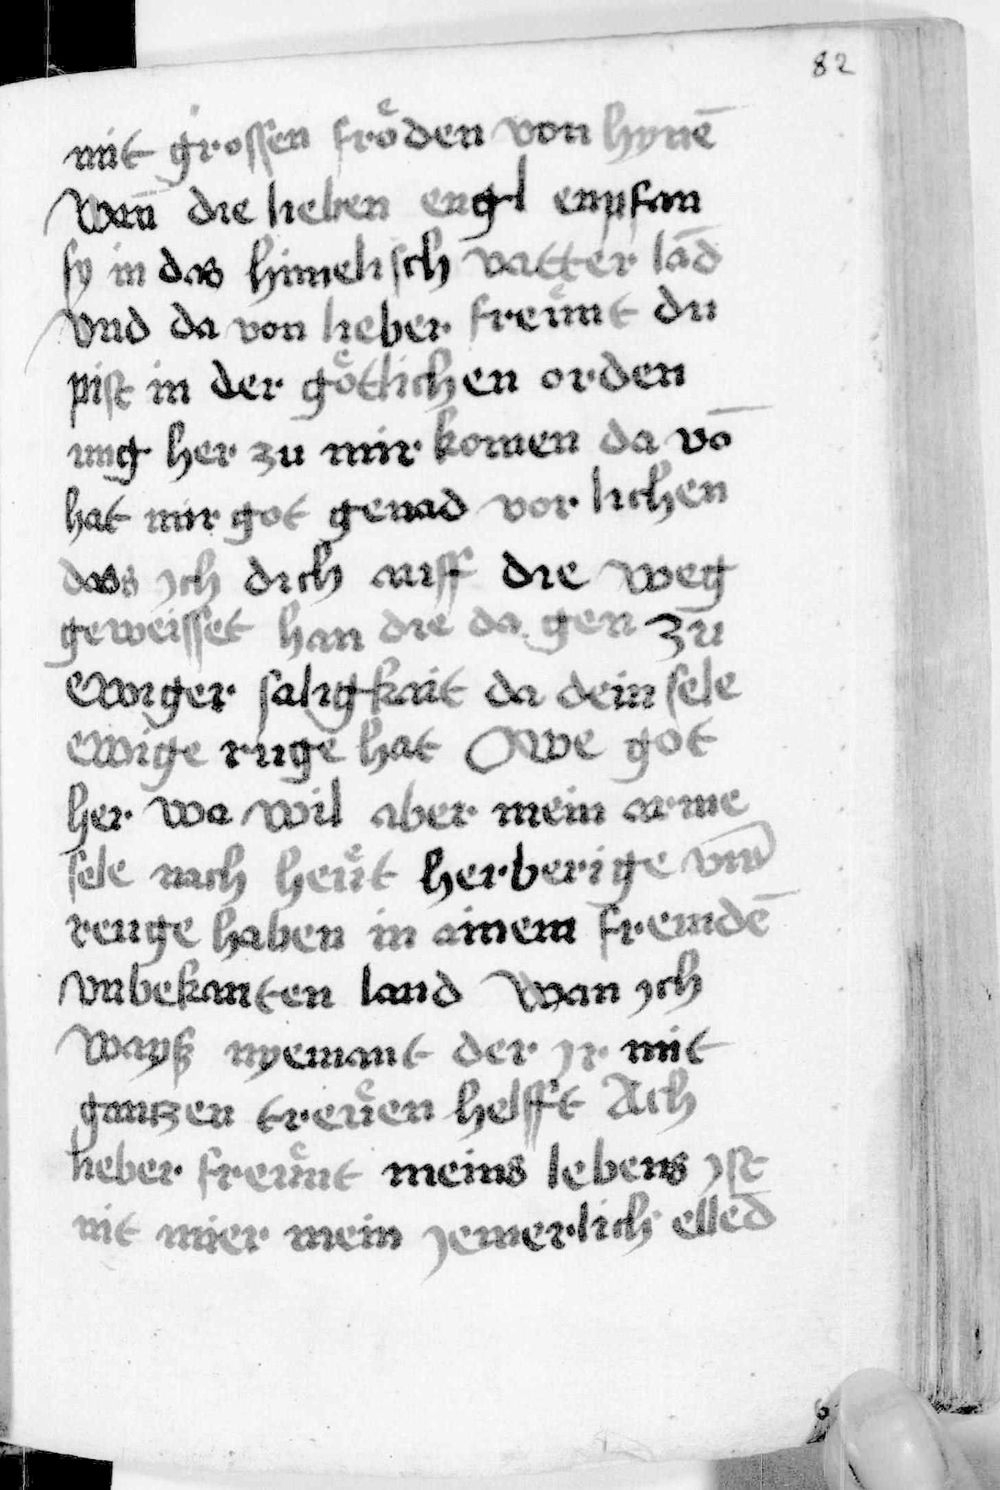 82
mit grossen froͤden von hynē
Wan̄ die lieben engl enpfan
sy in das himelisch vatter lād
Vnd da von lieber freuͤnt du
pist in der goͤtlichen orden
ung her zu mir komen da vō
hat mir got genad vor lichen
das ych dich auff die weg
geweisset han die da gen zu
ewiger saligkait da dein sele
ewige ruge hat Owe got
her wa wil aber mein arme
sele nach heuͤt herberige vnd
reuge haben in ainem fremdē
vnbekanten land Wan ych
Wayß nyemant der yr mit
gantzen treuͤen helfft Ach
lieber freuͤnt meins lebens yst
nit mier mein yemerlich ellēd